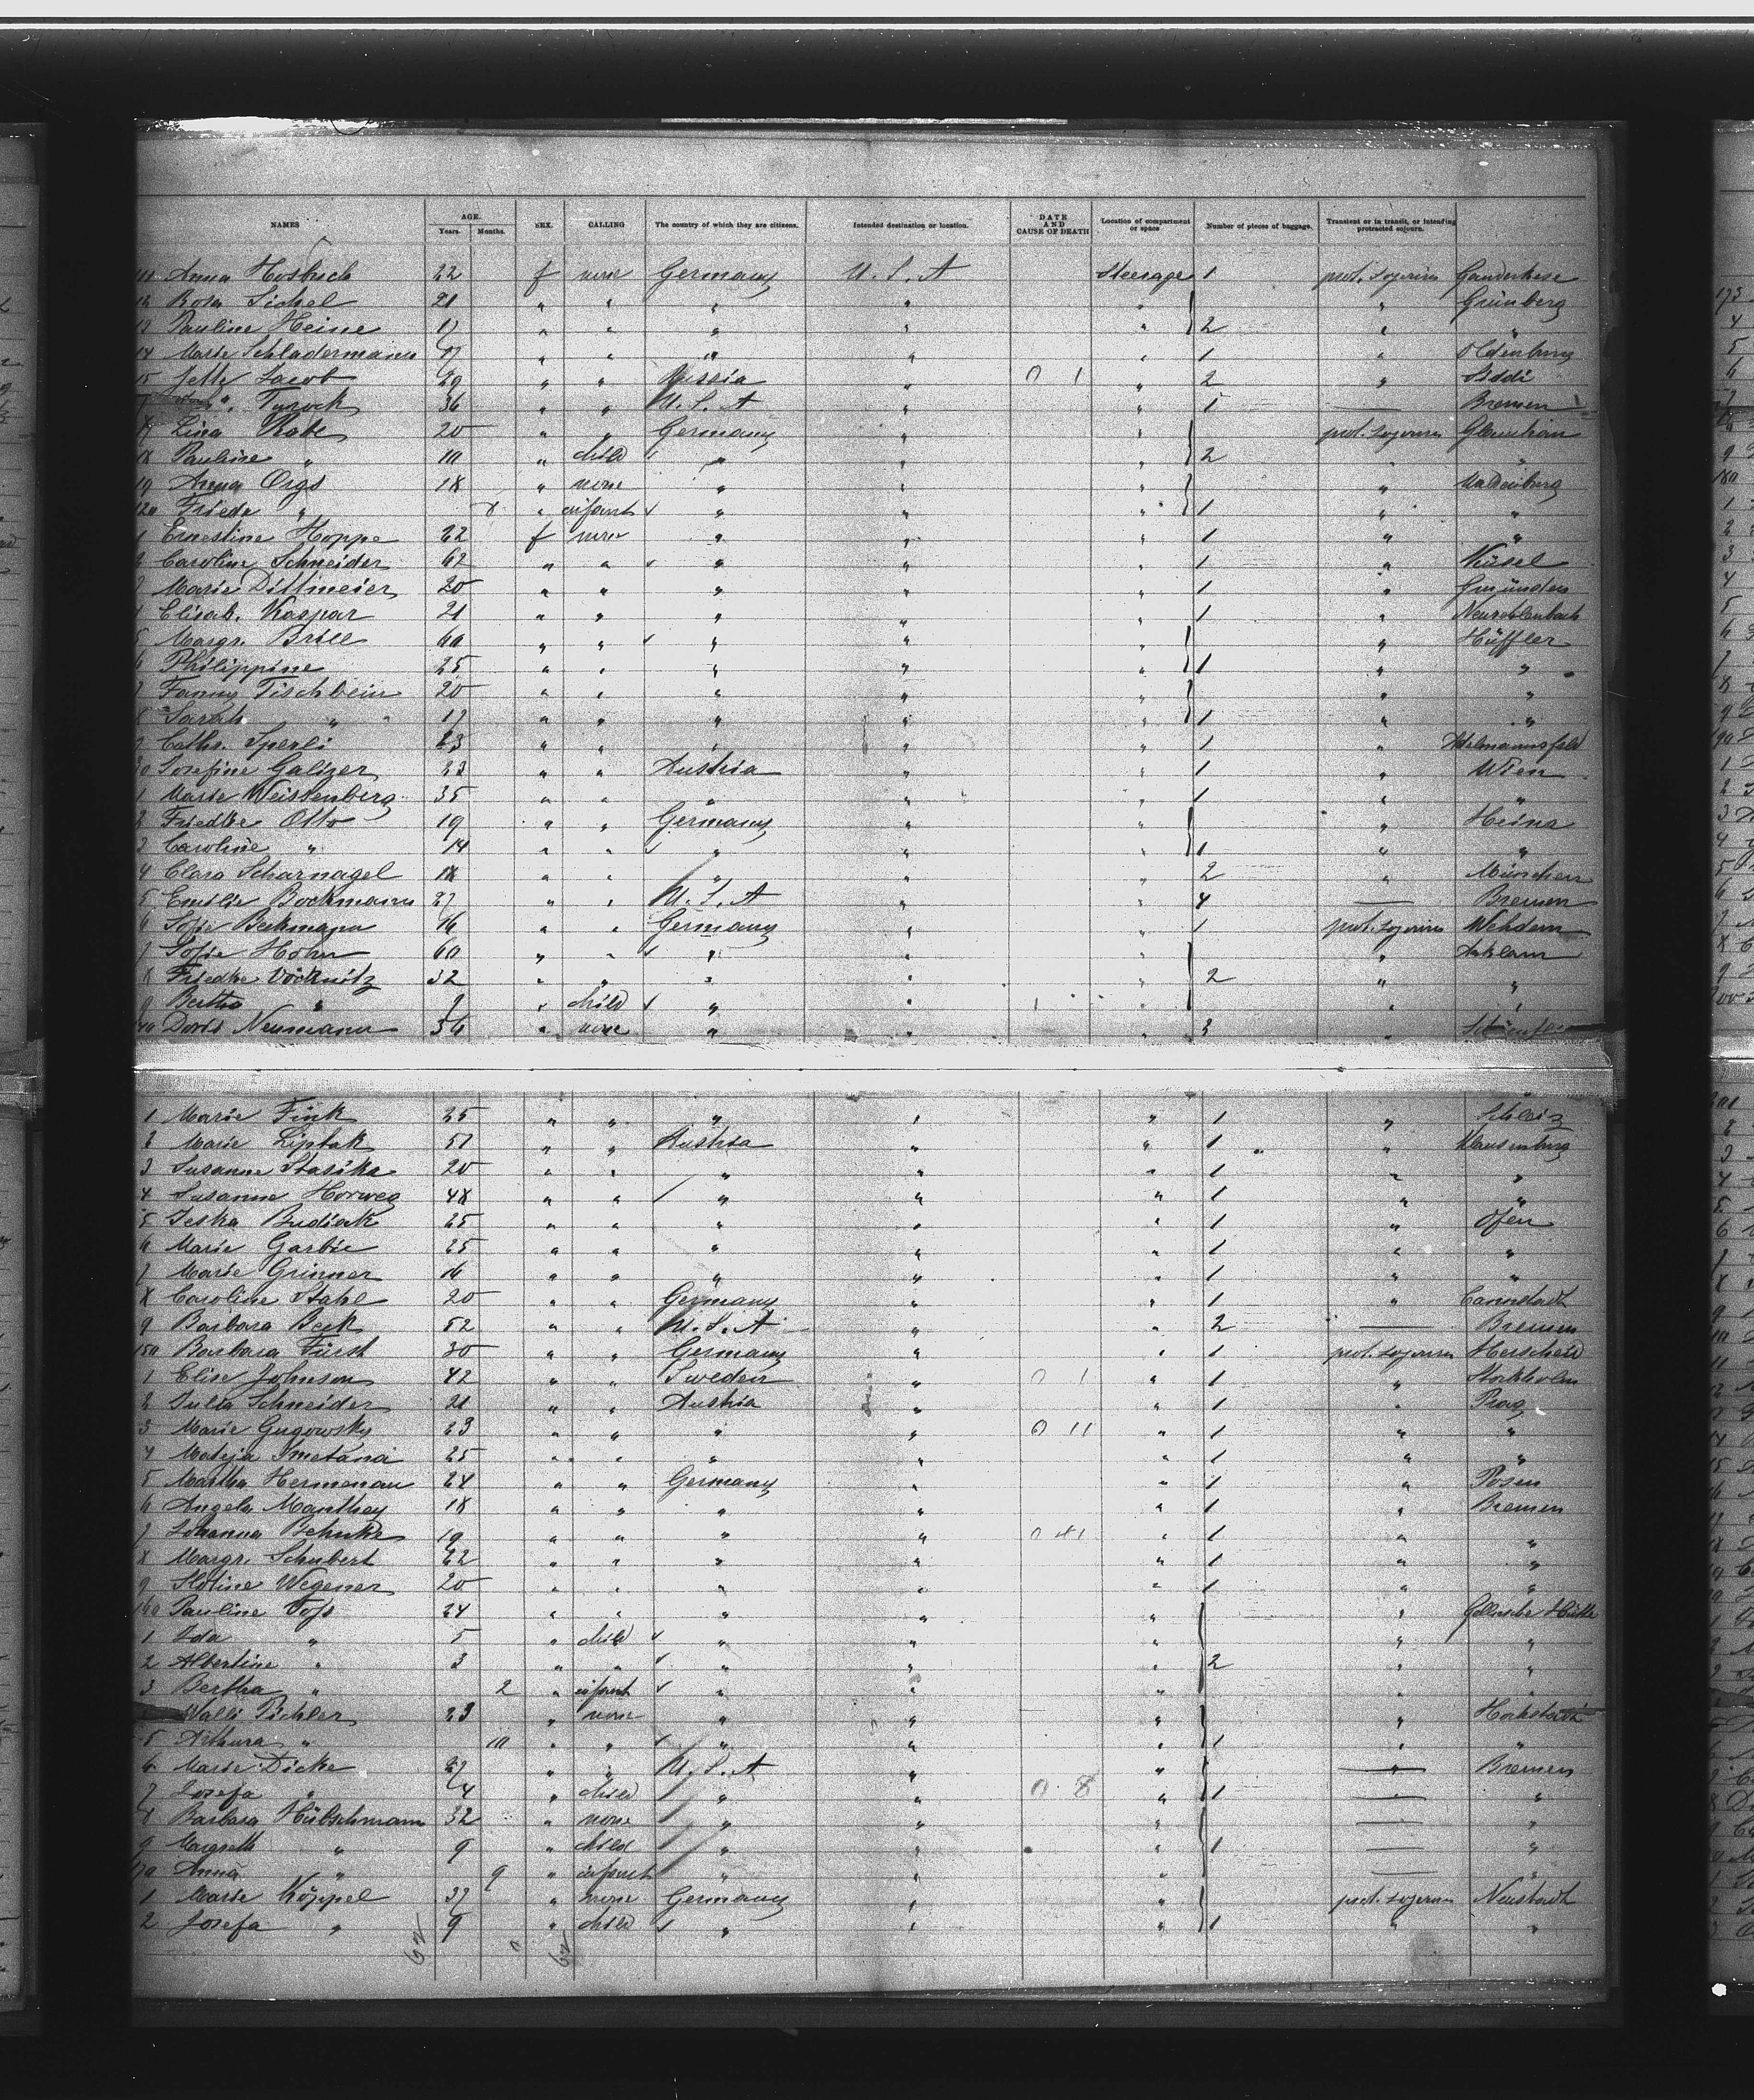 NAMES AGE. Years. Months. SEX. CALLING The country of which they are citizens. Intended destination or location. DATE AND CAUSE OF DEATH Location of compartment or space Number of pieces of baggage. Transient or in transit, or intending protracted sojourn.
111 Anna 22 f none Germany U. S. A Steerage 1 prot. sojourn Ganderkese
12 Rosa Sichel 21 " " " " " " Grünberg
13 Pauline Heine 17 " " " " " 2 " "
14 Marie Schladermann 17 " " " " " 1 " Oldenburg
15 Jette Jacob 29 " " Russia " 0 1 " 2 "
Turock 36 " " U. S. A " " 1 — Bremen
17 Lina Rabe 20 " " Germany " " prot. sojourn Glauchau
18 Pauline " 10 " child " " " 2 " "
19 Anna Orgs 18 " none " " " "
120 Frieda " " infant " " " 1 " "
1 Ernestine Hoppe 22 f none " " " 1 " "
2 Caroline Schneider 62 " " " " " 1 " Küsel
3 Marie Dittmeier 20 " " " " " 1 " Gmünden
4 Elisab. Kaspar 21 " " " " " 1 "
5 Margr. Brill 60 " " " " " " Hüffler
6 Philippine 25 " " " " " 1 " "
7 Fanny Tischbein 20 " " " " " " "
8 Sarah " 17 " " " " " 1 " "
9 Cathr. Sperli 23 " " " " " 1 " Adelmannsfeld
30 Josefine Galizer 23 " " Austria " " 1 " Wien
1 Marie Weistenberg 35 " " " " " 1 " "
2 Friedke Otto 19 " " Germany " " " Heina
3 Caroline " 14 " " " " " 1 " "
4 Clara Scharnagel 18 " " " " " 2 " München
5 Emilie Bockmann 27 " " U. S. A " " 4 — Bremen
6 Sofie Beckmann 16 " " Germany " " 1 prot. sojourn Wehdem
7 Sofie Hohn 60 " " " " " " Anklam
8 Friedke Vöcknitz 32 " " " " " 2 " "
9 Bertha " 9 " child " " " " "
140 Doris Neumann 56 " none " " " 3 "
1 Marie Fink 25 " " " " " 1 " Schleiz
2 Marie Liptak 51 " " Austria " " 1 " Klausenburg
3 Susanne Stasika 20 " " " " " 1 " "
4 Susanne Horweg 48 " " " " " 1 " "
5 Budiak 25 " " " " " 1 " Ofen
6 Marie Garbie 25 " " " " " 1 " "
7 Marie Grinner 16 " " " " " 1 " "
8 Caroline Stahl 20 " " Germany " " 1 " Cannstadt
9 Barbara Beck 52 " " U. S. A " " 2 — Bremen
150 Barbara Fürst 30 " " Germany " " 1 prot. sojourn Herscheid
1 Elise Johnson 42 " " Sweden " 0 1 " 1 " Stockholm
2 Julia Schneider 21 " " Austria " " 1 " Prag
3 Marie Gugowsky 23 " " " " 0 11 " 1 " "
4 Mateja Smetana 25 " " " " " 1 " "
5 Martha Hermenau 24 " " Germany " " 1 " Posen
6 Angela Manthey 18 " " " " " 1 " Bremen
7 Johanna Behnke 19 " " " " 0 41 " 1 " "
8 Margr. Schubert 22 " " " " " 1 " "
9 Wegener 20 " " " " " 1 " "
160 Pauline Voss 24 " " " " " " Hütte
1 Ida " 5 " child " " " " "
2 Albertine " 3 " " " " " 2 " "
3 Bertha " 2 " infant " " " " "
Walli Pichler 23 " none " " " " Hochstadt
5 Arthura " 10 " " " " " 1 " "
6 Marie Dicke 27 " " U. S. A " " — Bremen
7 Josefa " 4 " child " " 0 8 " 1 — "
8 Barbara Hübschmann 32 " none " " " — "
9 Margreth " 9 " child " " " 1 — "
170 Anna " 9 " infant " " " — "
1 Marie Köppel 37 " none Germany " " prot. sojourn Neustadt
2 Josefa " 9 " child " " " 1 " "
62 62